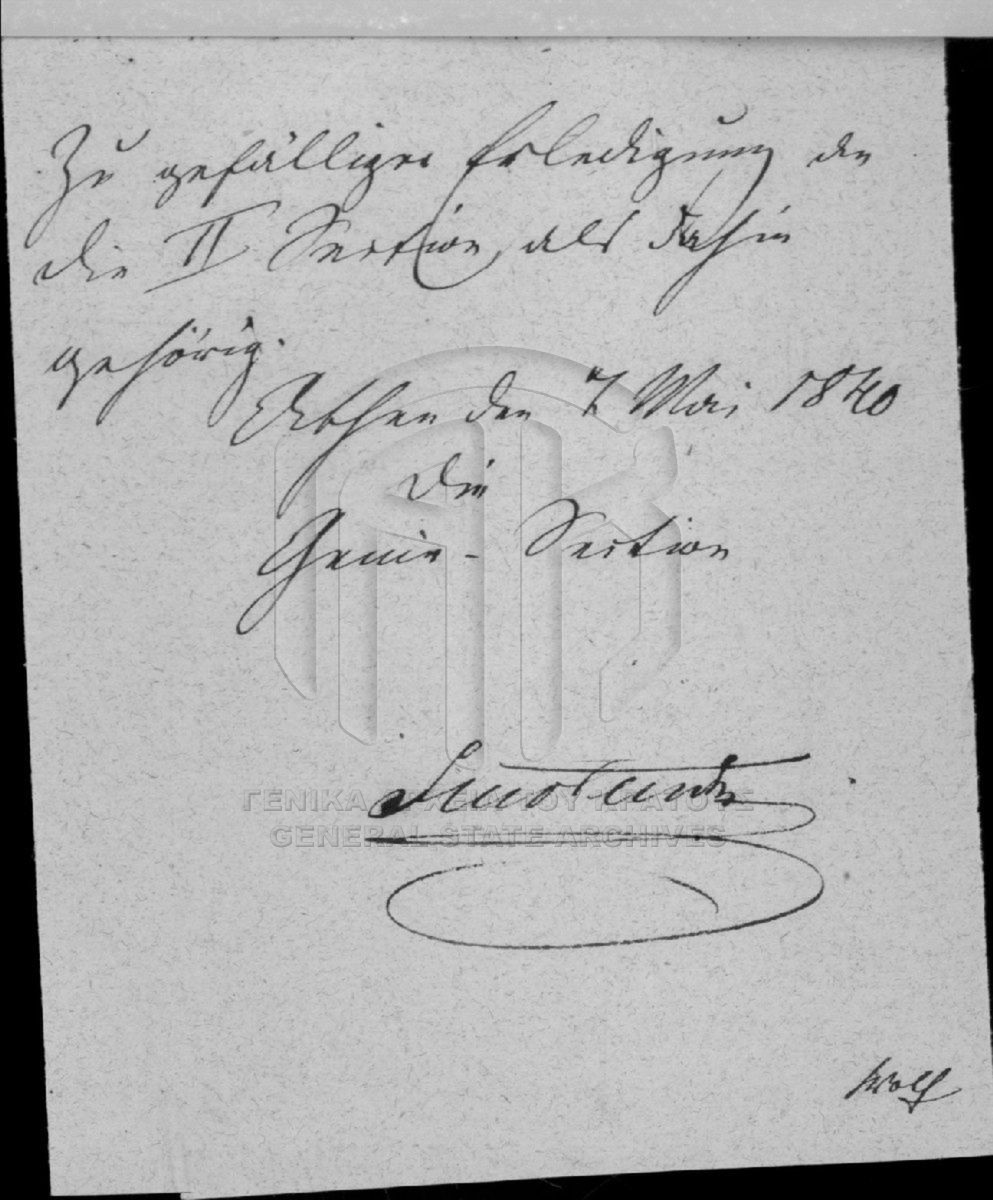 Zu gefälliger Erledigung an
die II Section, als dahin
gehörig.
Athen den 7 Mai 1840
Die
Genie - Section
ΓΕΝΙΚΑ ΑΡΧΕΙΑ ΤΟΥ ΚΡΑΤΟΥΣ
GENERAL STATE ARCHIVES
Wolf